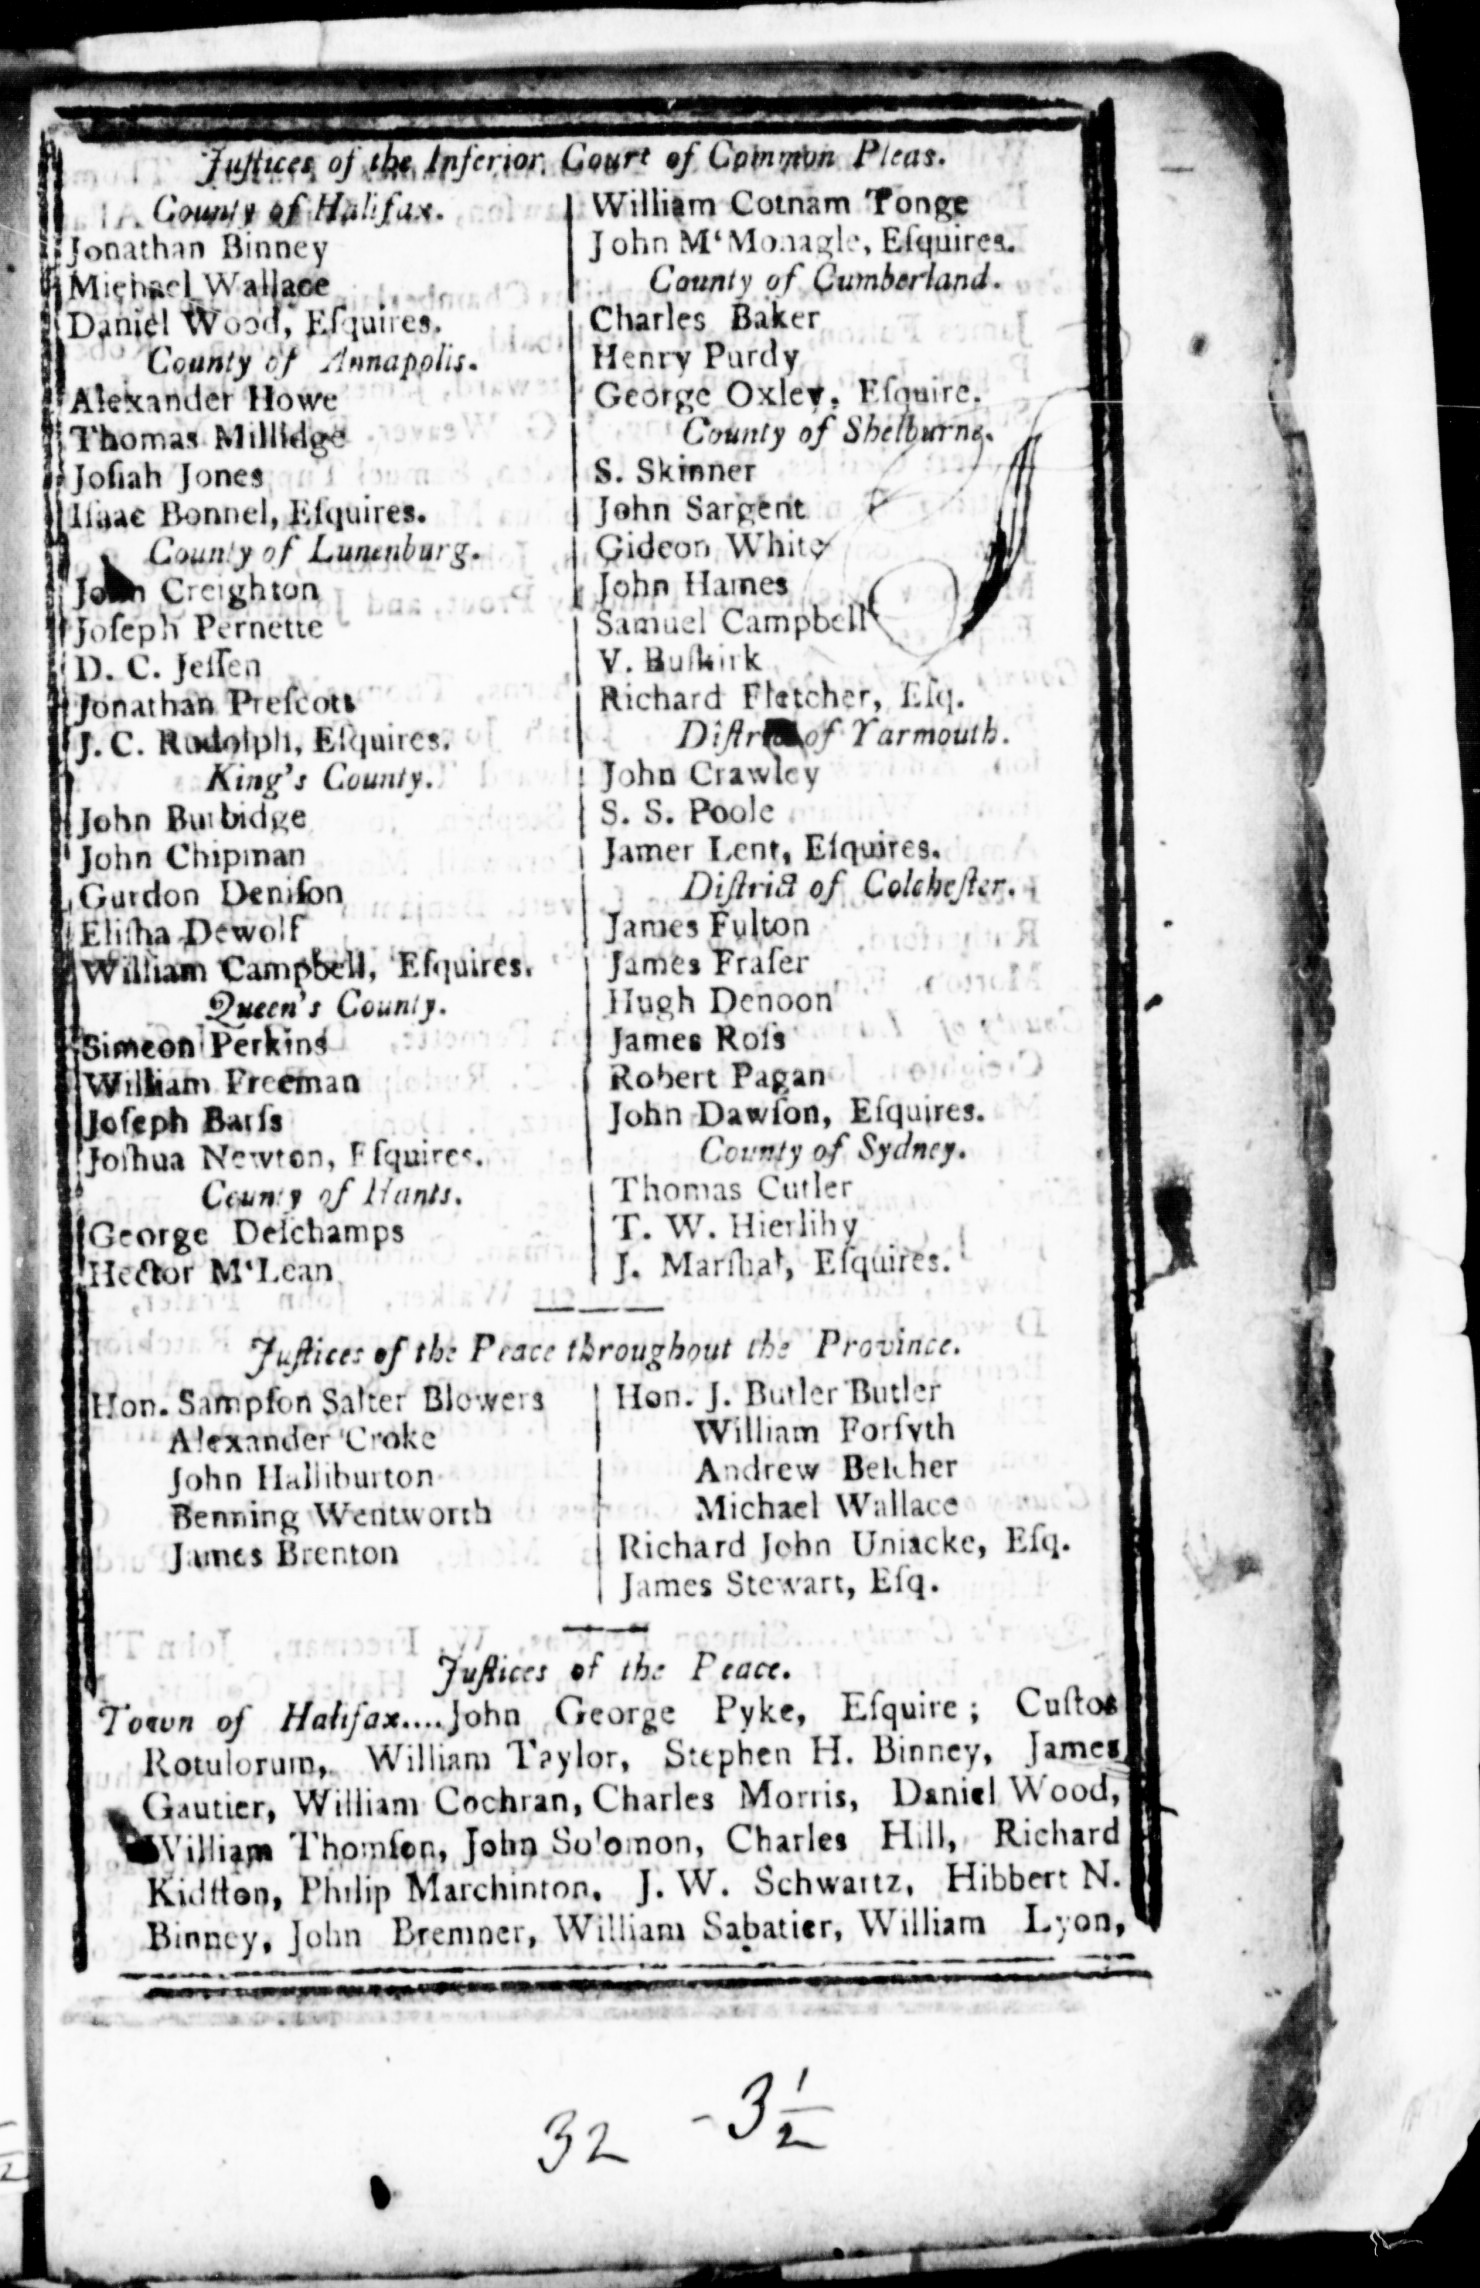 Juſtices of the Inferior Court of Common Pleas.
County of Halifax.
Jonathan Binney
Michael Wallace
Daniel Wood, Eſquires.
County of Annapolis.
Alexander Howe
Thomas Millidge
Joſiah Jones
Iſaac Bonnel, Eſquires.
County of Lunenburg.
John Creighton
Joſeph Pernette
D. C. Jeſſen
Jonathan Preſcott
J. C. Rudolph, Eſquires.
King's County.
John Burbidge
John Chipman
Gurdon Deniſon
Eliſha Dewolf
William Campbell, Eſquires.
Queen's County.
Simeon Perkins
William Freeman
Joſeph Barſs
Joſhua Newton, Eſquires.
County of Hants.
George Deſchamps
Hector M‘Lean
William Cotnam Tonge
John M‘Monagle, Eſquires.
County of Cumberland.
Charles Baker
Henry Purdy
George Oxley, Eſquire.
County of Shelburne.
S. Skinner
John Sargent
Gideon White
John Hames
Samuel Campbell
V. Buſkirk
Richard Fletcher, Eſq.
District of Yarmouth.
John Crawley
S. S. Poole
Jamer Lent, Eſquires.
Diſtrict of Colcheſter.
James Fulton
James Fraſer
Hugh Denoon
James Roſs
Robert Pagan
John Dawſon, Eſquires.
County of Sydney.
Thomas Cutler
T. W. Hierlihy
J. Marſhal, Eſquires.
Juſtices of the Peace throughout the Province.
Hon. Sampſon Salter Blowers
Alexander Croke
John Halliburton
Benning Wentworth
James Brenton
Hon. J. Butler Butler
William Forſyth
Andrew Belcher
Michael Wallace
Richard John Uniacke, Eſq.
James Stewart, Eſq.
Juſtices of the Peace.
Town of Halifax....John George Pyke, Eſquire; Cuſtos
Rotulorum, William Taylor, Stephen H. Binney, James
Gautier, William Cochran, Charles Morris, Daniel Wood,
William Thomſon, John Solomon, Charles Hill, Richard
Kidſton, Philip Marchinton, J. W. Schwartz, Hibbert N.
Binney, John Bremner, William Sabatier, William Lyon,
32 - 3 1/2